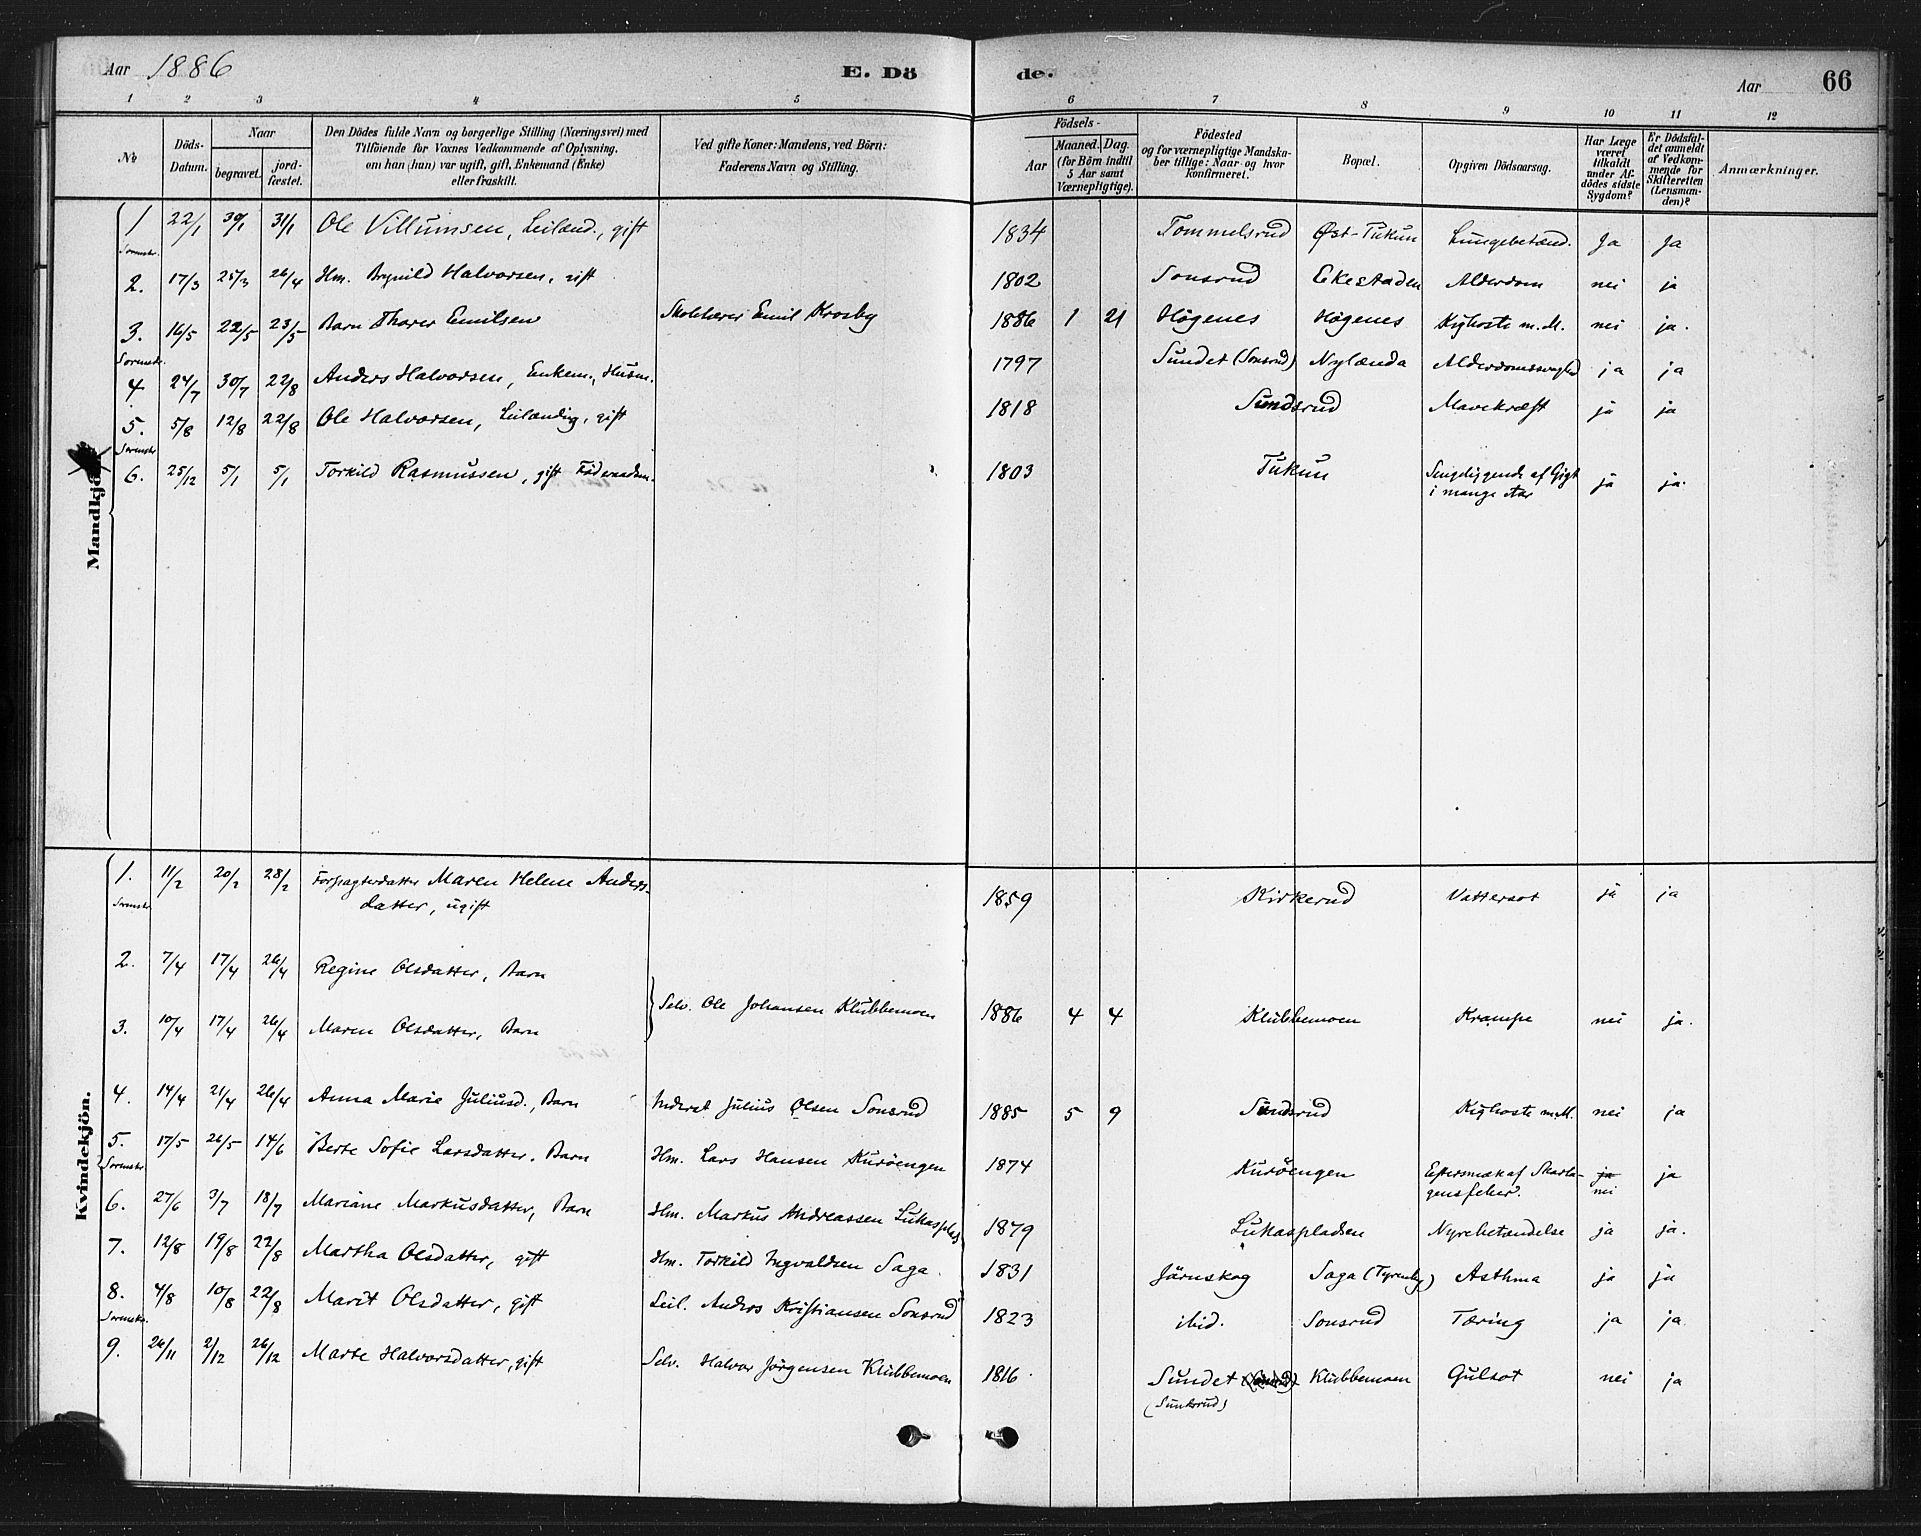 Aar 1886 E. Dö de. Aar 66
1 2 3 4 5 6 7 8 9 10 11 12
No
Döds-Datum.
Naar
begravet.
jordfæstet.
Den Dödes fulde Navn og borgerlige Stilling (Næringsvei) med
Tilföiende for Voxnes Vedkommende af Oplysning,
om han (hun) var ugift, gift, Enkemand (Enke)
eller fraskilt.
Ved gifte Koner: Mandens, ved Börn:
Faderens Navn og Stilling.
Födsels-
Aar
Maaned. Dag.
(for Börn indtil
5 Aar samt
Værnepligtige).
Födested
og for værnepligtige Mandskaber tillige: Naar og hvor
konfirmeret.
Bopæl.
Opgiven Dödsaarsag.
Har Læge
været
tilkaldt
under Afdödes sidste
Sygdom?
Er Dödsfaldet anmeldt
af Vedkommende for
Skifteretten
(Lensmanden)?
Anmærkninger.
Mandkjön.
1 22/1 30/1 31/1 Ole Villumsen, Leilænd., gift 1834 Tommelsrud Øst-Tukun Lungebetænd. Ja Ja
2. 17/3 25/3 26/4 Hm. Brynild Halvorsen, gift 1802 Sonsrud Ekestaden Alderdom nei ja
3. 16/5 22/5 23/5 Barn Thorer Emilsen Skolelærer Emil Krosby 1886 1 21 Høgenes Høgenes Kighoste m.M. nei ja.
4 24/7 30/7 22/8 Anders Halvorsen, Enkem., Husm. 1797 Sundet (Sonsrud) Nylænda Alderdomssvaghed ja ja
5. 5/8 12/8 22/8 Ole Halvorsen, Leilændig, gift 1818 Sundsrud Mavekræft ja ja
6. 25/12 5/1 5/1 Torkild Rasmussen, gift Föderaadsm. 1803 Tukun Sengeliggende af Gigt
i mange Aar ja ja.
Kvindekjön.
1. 11/2 20/2 28/2 Forpagterdatter Maren Helene Anders-
datter, ugift 1859 Kirkerud Vattersot ja ja
2. 7/4 17/4 26/4 Regine Olsdatter, Barn
Selv. Ole Johansen Klubbemoen
3. 10/4 17/4 26/4 Maren Olsdatter, Barn 1886 4 4 Klubbemoen Krampe nei ja.
4. 14/4 21/4 26/4 Anna Marie Juliusd., Barn Inderst Julius Olsen Sonsrud 1885 5 9 Sundsrud Kighoste m.M. nei ja
5. 17/5 26/5 14/6 Berte Sofie Larsdatter. Barn Hm. Lars Hansen Kuröengen 1874 Kuröengen Eftersmæk af Skarla-
gensfeber. ja nei ja
6. 27/6 3/7 18/7 Mariane Markusdatter, Barn Hm. Markus Andreassen Lukasplads 1879 Lukaspladsen Nyrebetændelse ja ja.
7. 12/8 19/8 22/8 Martha Olsdatter, gift Hm. Torkild Ingvaldsen Saga. 1831 Järnskog Saga (Tyrenby) Asthma ja ja
8. 4/8 10/8 22/8 Marit Olsdatter, gift Leil. Anders Kristiansen Sonsrud 1823 ibid. Sonsrud Tæring ja ja
9. 26/11 2/12 26/12 Marte Halvorsdatter, gift Selv. Halvor Jörgensen Klubbemoen 1816 Sundet Klubbemoen Gulsot nei ja